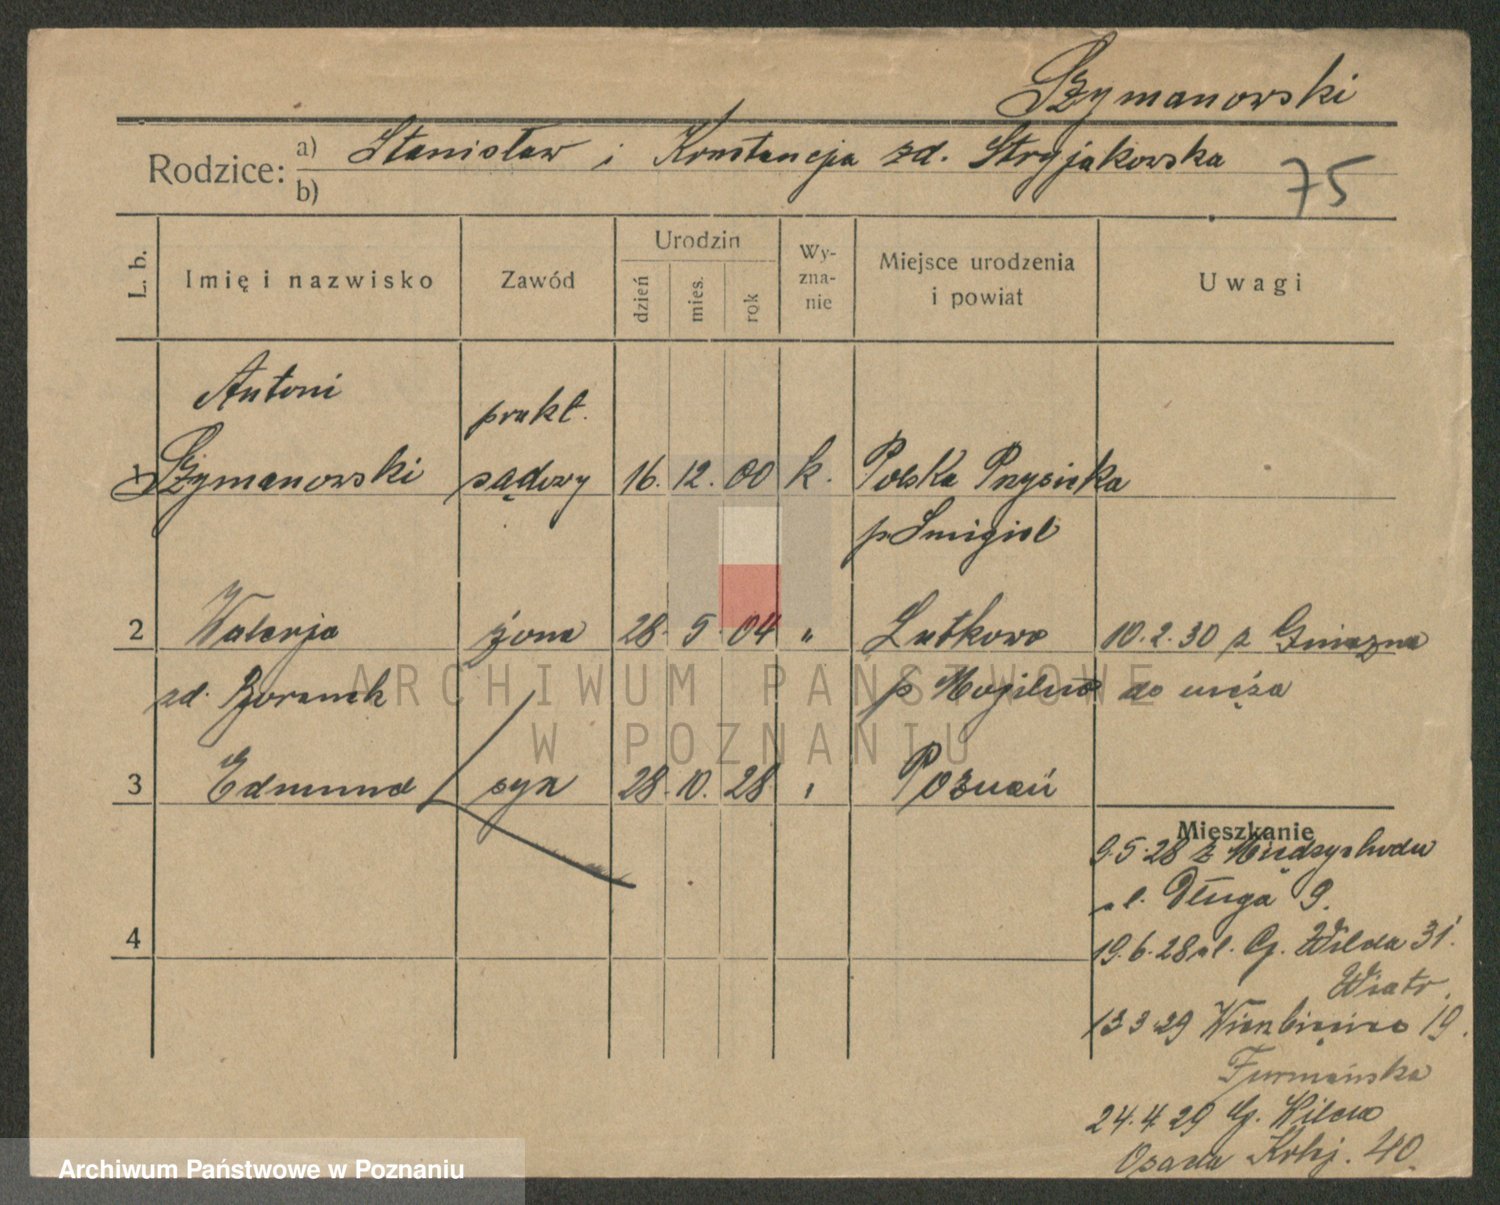 Szymanowski
Rodzice: a) Stanisław i Konstancja zd. Stryjakowska
b)
75
L. b. Imię i nazwisko Zawód Urodzin dzień mies. rok Wy-zna-nie Miejsce urodzenia i powiat Uwagi
Antoni prakt.
1 Szymanowski sądowy 16. 12. 00 k. Polska Przysieka
p Smigiel
2 Walerja żona 28. 5. 04 " Lutkowo 10.2.30 z Gniezna
zd. p Mogilno do męża
3 Edmund syn 28. 10. 28 " Poznań
Mieszkanie
9.5.28 z Międzychodu
ul. Długa 9.
4
19.6.28 ul. G. Wilda 31.
Wiatr.
13.3.29 Wierzbięcice 19.
Furmańska
24.4.29 G. Wilda
40.
ARCHIWUM PAŃSTWOWE
W POZNANIU
Archiwum Państwowe w Poznaniu